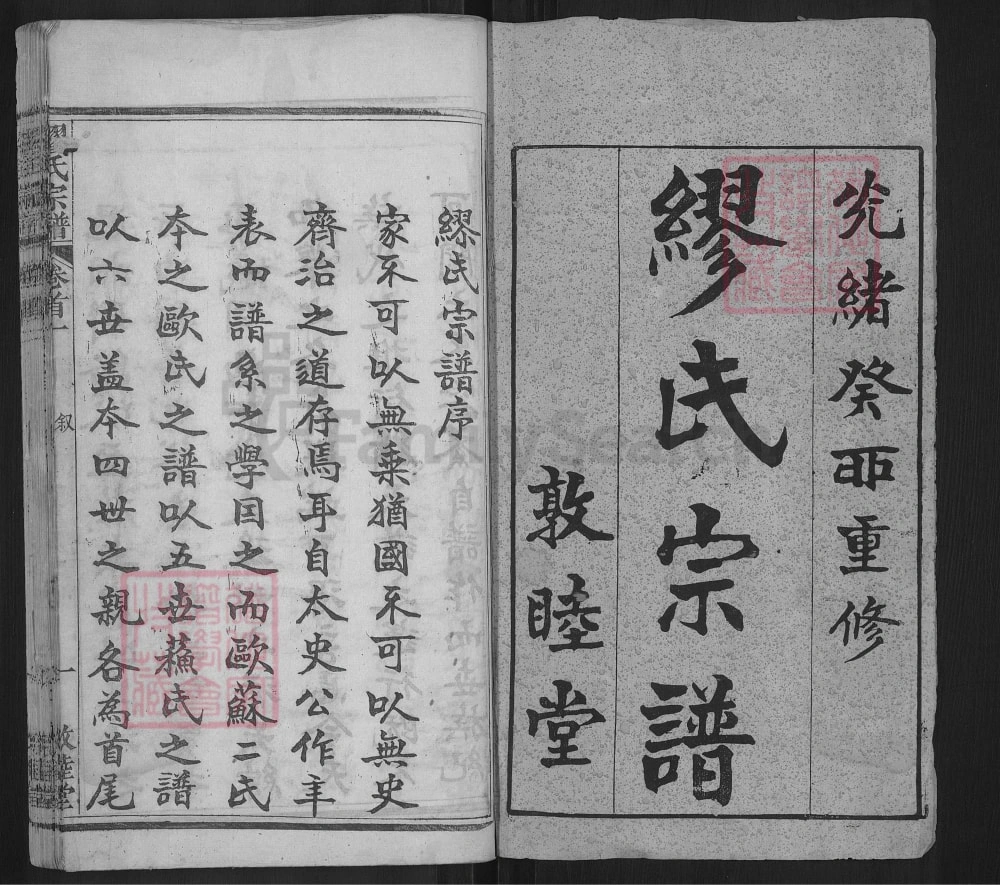 光緒癸酉重修
繆氏宗譜
敦睦堂
繆氏宗譜序
家不可以無乗猶國不可以無史
齊治之道存焉耳自太史公作年
表而譜系之學因之而歐蘇二氏
本之歐氏之譜以五世蘓氏之譜
以六世盖本四世之親各為首尾
繆氏宗譜
卷首一
叙
一
敦睦堂
FamilySearch